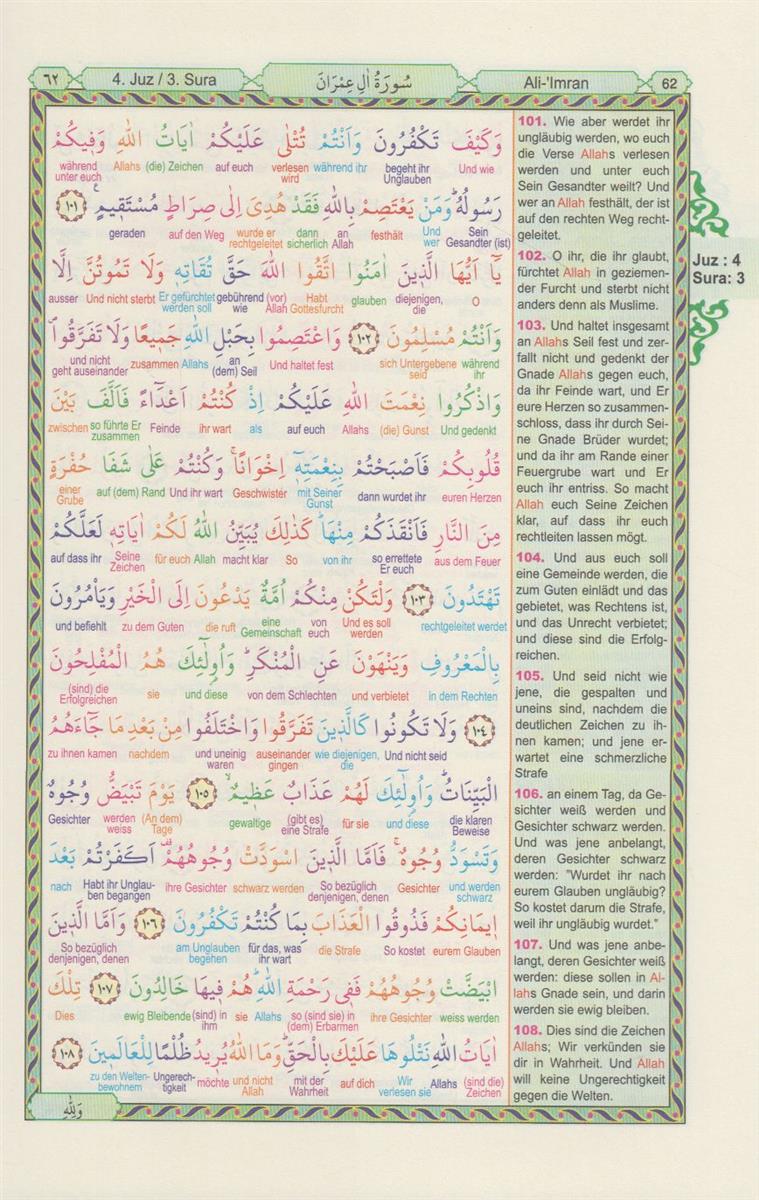 ٦٢
4. Juz / 3. Sura
سُورَةُ اٰلِ عِمْرَانَ
Ali-'Imran
62
وَكَيْفَ تَكْفُرُونَ وَاَنْتُمْ تُتْلٰى عَلَيْكُمْ اٰيَاتُ اللّٰهِ وَفٖيكُمْ
Und wie begeht ihr Unglauben während ihr verlesen wird auf euch (die) Zeichen Allahs während unter euch
رَسُولُهُؕ وَمَنْ يَعْتَصِمْ بِاللّٰهِ فَقَدْ هُدِىَ اِلٰى صِرَاطٍ مُسْتَقٖيمٍ ۟ ١٠١
Sein Gesandter (ist) Und wer festhält an Allah dann sicherlich wurde er rechtgeleitet auf den Weg geraden
يَٓا اَيُّهَا الَّذٖينَ اٰمَنُوا اتَّقُوا اللّٰهَ حَقَّ تُقَاتِهٖ وَلَا تَمُوتُنَّ اِلَّا
O diejenigen, die glauben Habt Gottesfurcht (vor) Allah gebührend wie Er gefürchtet werden soll Und nicht sterbt ausser
وَاَنْتُمْ مُسْلِمُونَ ١٠٢ وَاعْتَصِمُوا بِحَبْلِ اللّٰهِ جَمٖيعًا وَلَا تَفَرَّقُواࣕ
während ihr sich Untergebene seid Und haltet fest an (dem) Seil Allahs zusammen und nicht geht auseinander
وَاذْكُرُوا نِعْمَتَ اللّٰهِ عَلَيْكُمْ اِذْ كُنْتُمْ اَعْدَٓاءً فَاَلَّفَ بَيْنَ
Und gedenkt (die) Gunst Allahs auf euch als ihr wart Feinde so führte Er zusammen zwischen
قُلُوبِكُمْ فَاَصْبَحْتُمْ بِنِعْمَتِهٖٓ اِخْوَانًاۚ وَكُنْتُمْ عَلٰى شَفَا حُفْرَةٍ
euren Herzen dann wurdet ihr mit Seiner Gunst Geschwister Und ihr wart auf (dem) Rand einer Grube
مِنَ النَّارِ فَاَنْقَذَكُمْ مِنْهَاؕ كَذٰلِكَ يُبَيِّنُ اللّٰهُ لَكُمْ اٰيَاتِهٖ لَعَلَّكُمْ
aus dem Feuer so errettete Er euch von ihr So macht klar Allah für euch Seine Zeichen auf dass ihr
تَهْتَدُونَ ١٠٣ وَلْتَكُنْ مِنْكُمْ اُمَّةٌ يَدْعُونَ اِلَى الْخَيْرِ وَيَاْمُرُونَ
rechtgeleitet werdet Und es soll werden von euch eine Gemeinschaft die ruft zu dem Guten und befiehlt
بِالْمَعْرُوفِ وَيَنْهَوْنَ عَنِ الْمُنْكَرِؕ وَاُو۬لٰٓئِكَ هُمُ الْمُفْلِحُونَ
in dem Rechten und verbietet von dem Schlechten und diese sie (sind) die Erfolgreichen
١٠٤ وَلَا تَكُونُوا كَالَّذٖينَ تَفَرَّقُوا وَاخْتَلَفُوا مِنْ بَعْدِ مَا جَٓاءَهُمُ
Und nicht seid wie diejenigen, die auseinander gingen und uneinig waren nachdem zu ihnen kamen
الْبَيِّنَاتُؕ وَاُو۬لٰٓئِكَ لَهُمْ عَذَابٌ عَظٖيمٌۙ ١٠٥ يَوْمَ تَبْيَضُّ وُجُوهٌ
die klaren Beweise und diese für sie (gibt es) eine Strafe gewaltige (An dem) Tage werden weiss Gesichter
وَتَسْوَدُّ وُجُوهٌۚ فَاَمَّا الَّذٖينَ اسْوَدَّتْ وُجُوهُهُمْ۠ اَكَفَرْتُمْ بَعْدَ
und werden schwarz Gesichter So bezüglich denjenigen, denen schwarz werden ihre Gesichter Habt ihr Unglauben begangen nach
اٖيمَانِكُمْ فَذُوقُوا الْعَذَابَ بِمَا كُنْتُمْ تَكْفُرُونَ ١٠٦ وَاَمَّا الَّذٖينَ
eurem Glauben So kostet die Strafe für das, was ihr wart am Unglauben begehen So bezüglich denjenigen, denen
ابْيَضَّتْ وُجُوهُهُمْ فَفٖى رَحْمَةِ اللّٰهِؕ هُمْ فٖيهَا خَالِدُونَ ١٠٧ تِلْكَ
weiss werden ihre Gesichter so (sind sie) in (dem) Erbarmen Allahs sie (sind) in ihm ewig Bleibende Dies
اٰيَاتُ اللّٰهِ نَتْلُوهَا عَلَيْكَ بِالْحَقِّؕ وَمَا اللّٰهُ يُرٖيدُ ظُلْمًا لِلْعَالَمٖينَ ١٠٨
(sind die) Zeichen Allahs Wir verlesen sie auf dich mit der Wahrheit und nicht Allah möchte Ungerechtigkeit zu den Weltenbewohnern
وَلِلّٰهِ
101. Wie aber werdet ihr
ungläubig werden, wo euch
die Verse Allahs verlesen
werden und unter euch
Sein Gesandter weilt? Und
wer an Allah festhält, der ist
auf den rechten Weg recht-
geleitet.
102. O ihr, die ihr glaubt,
fürchtet Allah in geziemen-
der Furcht und sterbt nicht
anders denn als Muslime.
103. Und haltet insgesamt
an Allahs Seil fest und zer-
fallt nicht und gedenkt der
Gnade Allahs gegen euch,
da ihr Feinde wart, und Er
eure Herzen so zusammen-
schloss, dass ihr durch Sei-
ne Gnade Brüder wurdet;
und da ihr am Rande einer
Feuergrube wart und Er
euch ihr entriss. So macht
Allah euch Seine Zeichen
klar, auf dass ihr euch
rechtleiten lassen mögt.
104. Und aus euch soll
eine Gemeinde werden, die
zum Guten einlädt und das
gebietet, was Rechtens ist,
und das Unrecht verbietet;
und diese sind die Erfolg-
reichen.
105. Und seid nicht wie
jene, die gespalten und
uneins sind, nachdem die
deutlichen Zeichen zu ih-
nen kamen; und jene er-
wartet eine schmerzliche
Strafe
106. an einem Tag, da Ge-
sichter weiß werden und
Gesichter schwarz werden.
Und was jene anbelangt,
deren Gesichter schwarz
werden: "Wurdet ihr nach
eurem Glauben ungläubig?
So kostet darum die Strafe,
weil ihr ungläubig wurdet."
107. Und was jene anbe-
langt, deren Gesichter weiß
werden: diese sollen in Al-
lahs Gnade sein, und darin
werden sie ewig bleiben.
108. Dies sind die Zeichen
Allahs; Wir verkünden sie
dir in Wahrheit. Und Allah
will keine Ungerechtigkeit
gegen die Welten.
Juz : 4
Sura: 3